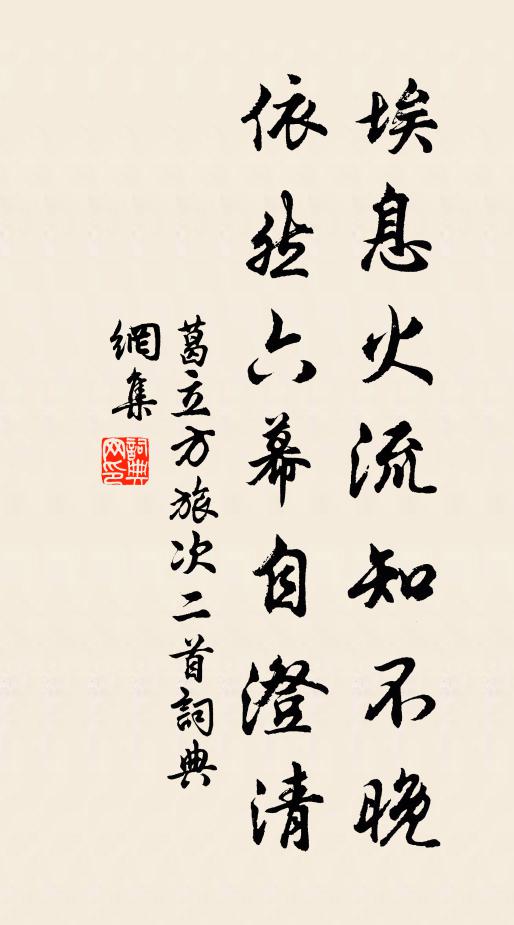 埃息火流知不晚
依然六幕自澄清
葛立方旅次二首詞典
網集
詞典網印